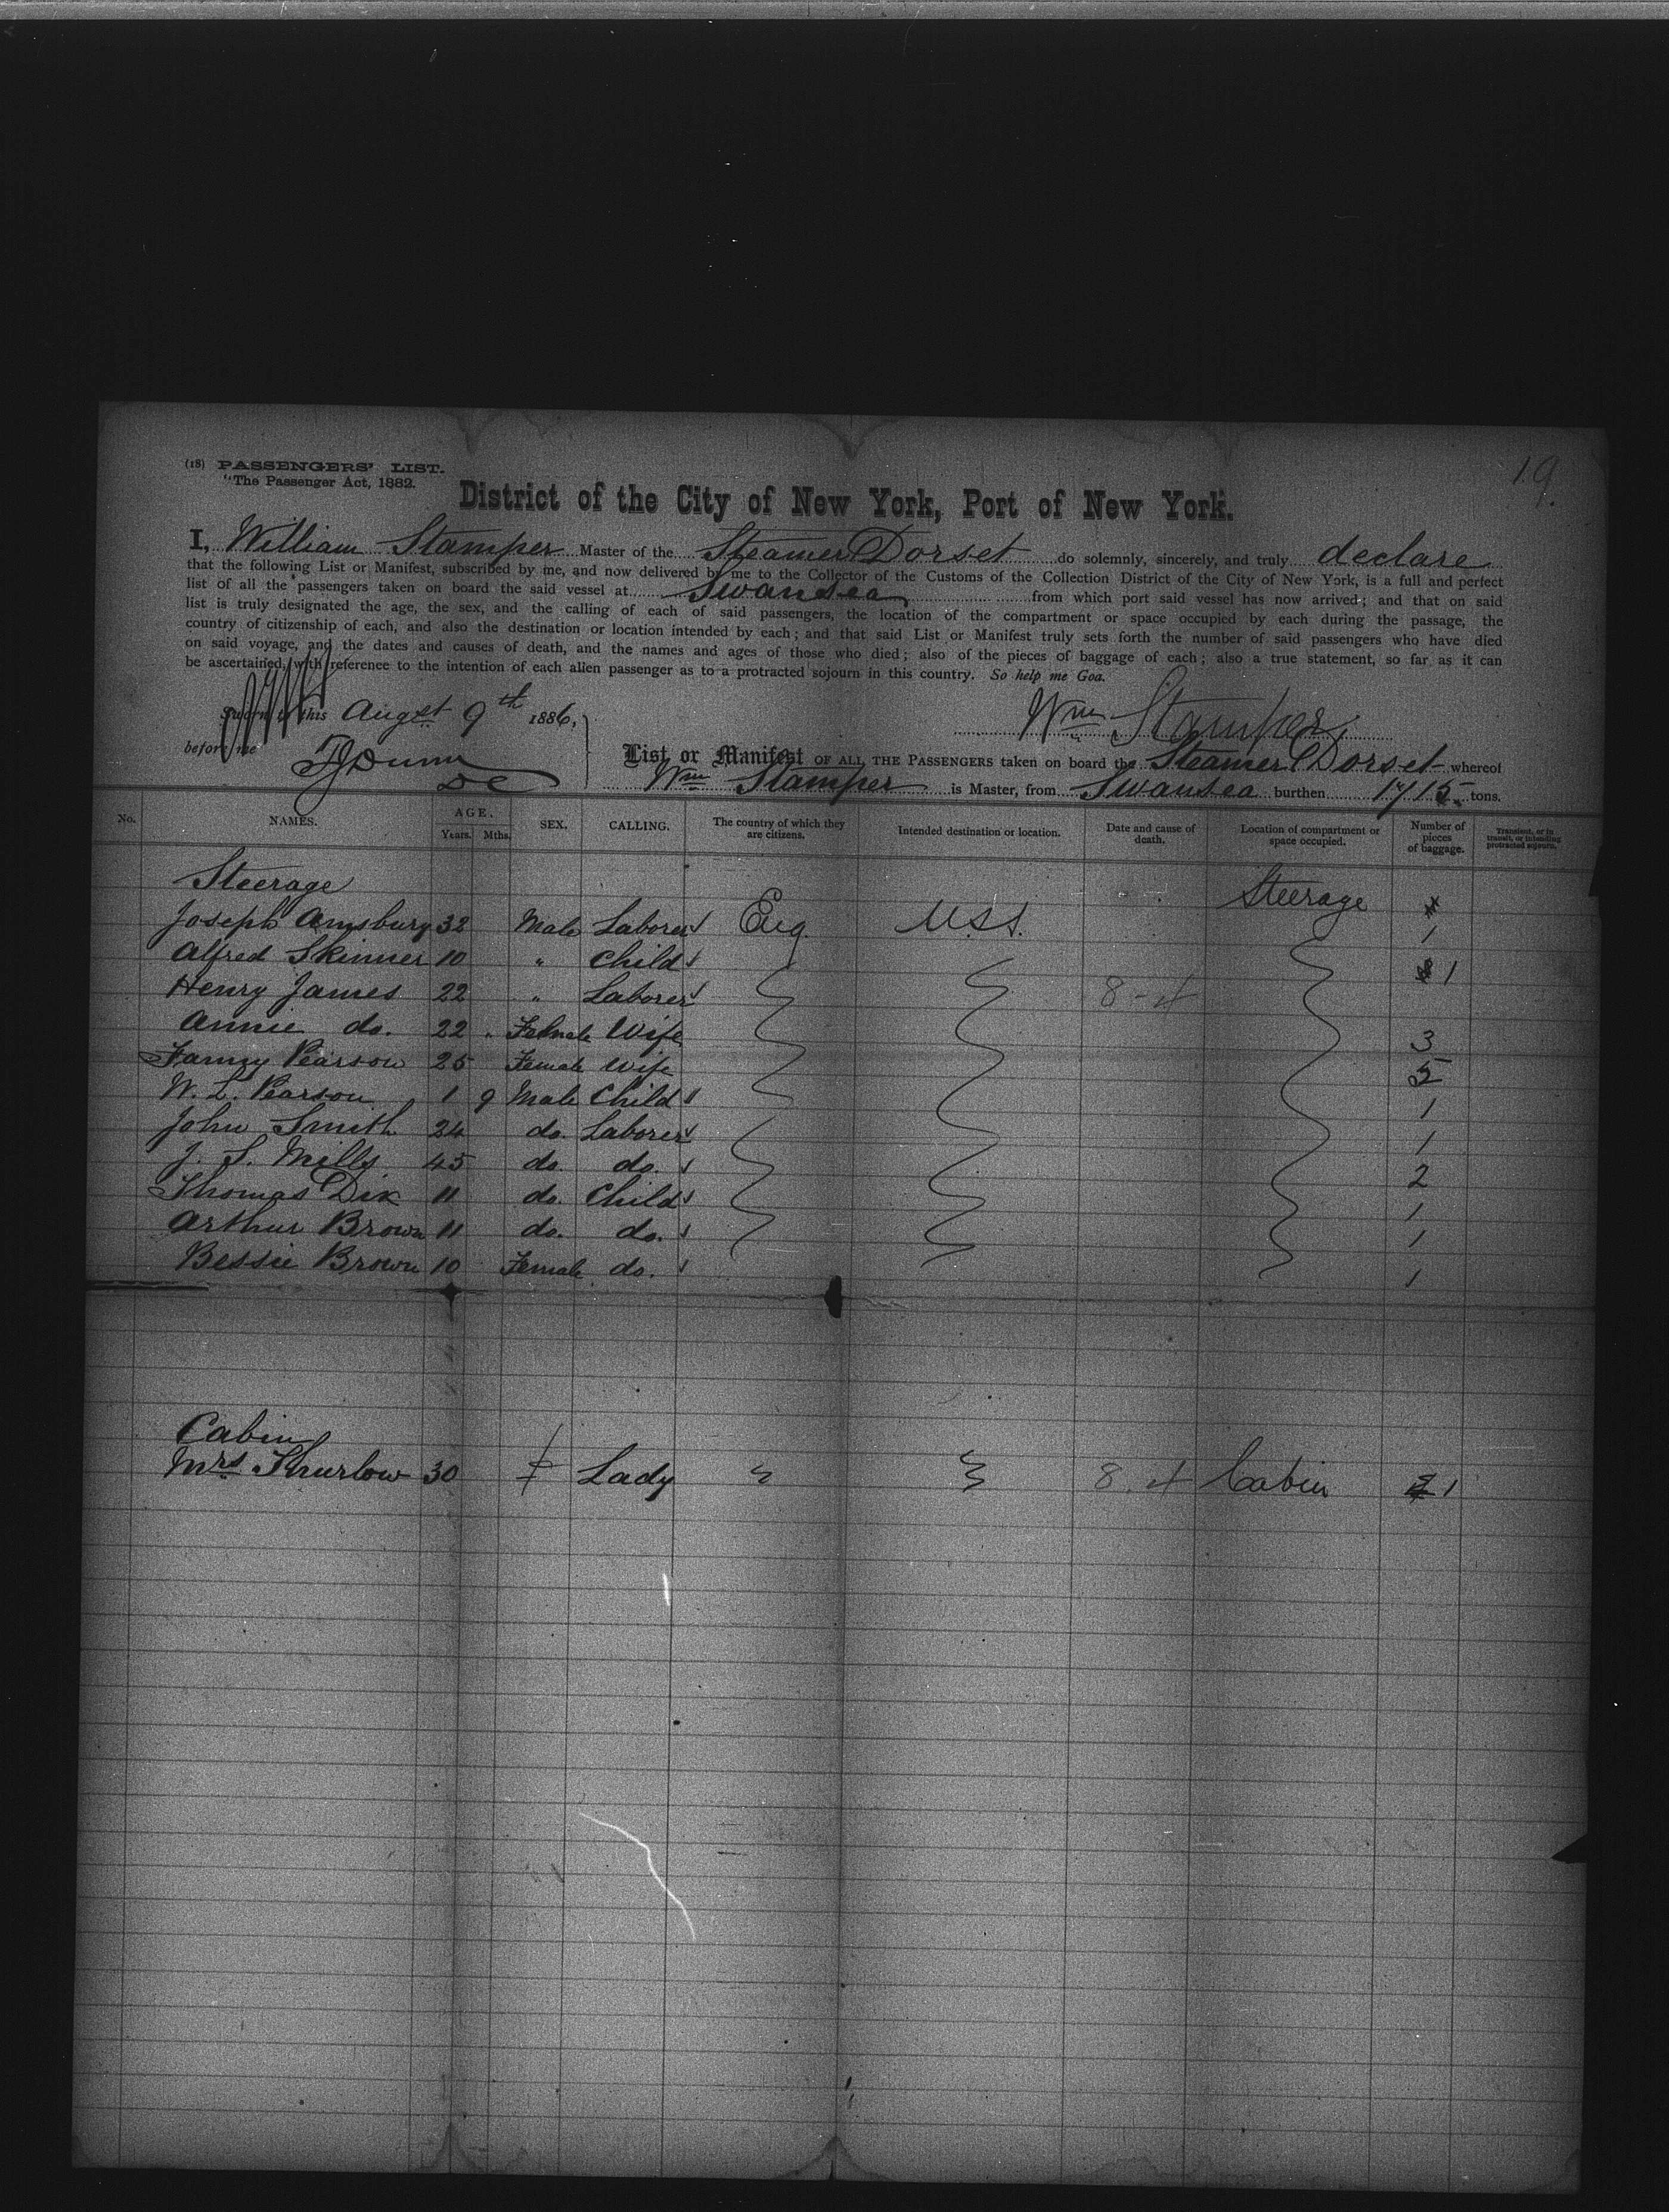 (18) PASSENGERS' LIST.
"The Passenger Act, 1882.
19
District of the City of New York, Port of New York.
I, William Stamper Master of the Steamer Dorset do solemnly, sincerely, and truly declare
that the following List or Manifest, subscribed by me, and now delivered by me to the Collector of the Customs of the Collection District of the City of New York, is a full and perfect
list of all the passengers taken on board the said vessel at Swansea from which port said vessel has now arrived; and that on said
list is truly designated the age, the sex, and the calling of each of said passengers, the location of the compartment or space occupied by each during the passage, the
country of citizenship of each, and also the destination or location intended by each; and that said List or Manifest truly sets forth the number of said passengers who have died
on said voyage, and the dates and causes of death, and the names and ages of those who died; also of the pieces of baggage of each; also a true statement, so far as it can
be ascertained, with reference to the intention of each alien passenger as to a protracted sojourn in this country. So help me God.
Sworn to this Augst 9th 1886,
before me
Wm Stamper
List or Manifest OF ALL THE PASSENGERS taken on board the Steamer Dorset whereof
Wm Stamper is Master, from Swansea burthen 1715 tons.
No. NAMES. AGE. Years. Mths. SEX. CALLING. The country of which they are citizens. Intended destination or location. Date and cause of death. Location of compartment or space occupied. Number of pieces of baggage. Transient, or in transit, or intending protracted sojourn.
Steerage Steerage
Joseph Amsbury 32 Male Laborer Eng. U.S.S. 1
Alfred Skinner 10 " Child 1
Henry James 22 " Laborer 8-4
Annie do. 22 Female Wife 3
Fanny Pearson 25 Female Wife 5
W. L. Pearson 1 9 Male Child 1
John Smith 24 do. Laborer 1
J. S. Mills 45 do. do. 2
Thomas Dix 11 do. Child 1
Arthur Brown 11 do. do. 1
Bessie Brown 10 Female do. 1
Cabin
Mrs Thurlow 30 f Lady 8.4 Cabin 1